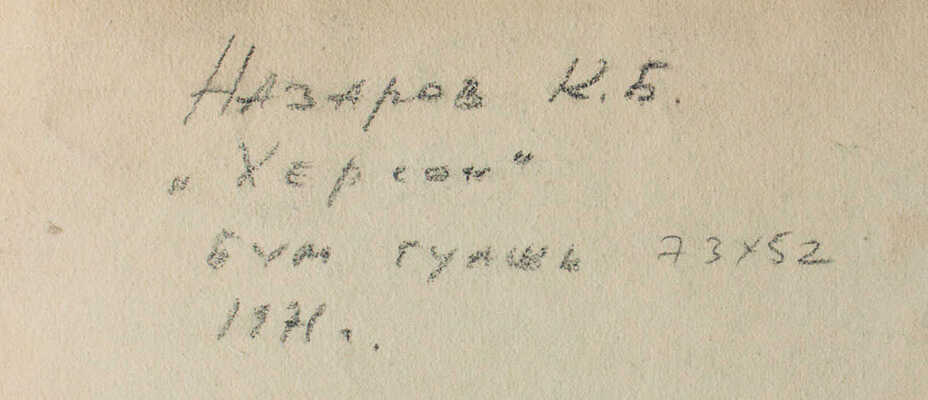 Назаров К.Б.
„Херсон"
Бум гуашь 73х52
1971г.